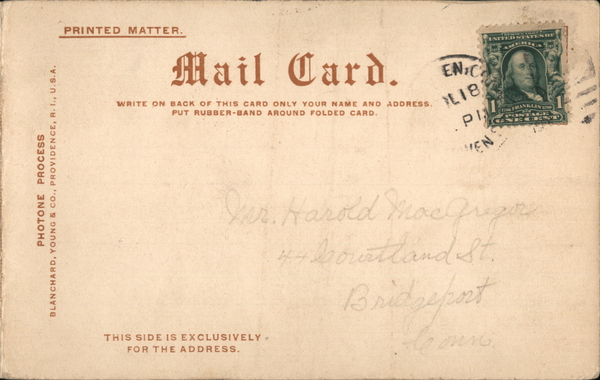 PRINTED MATTER.
Mail Card.
WRITE ON BACK OF THIS CARD ONLY YOUR NAME AND ADDRESS.
PUT RUBBER-BAND AROUND FOLDED CARD.
PHOTONE PROCESS
BLANCHARD, YOUNG & CO., PROVIDENCE, R. I., U.S.A.
UNITED STATES OF
AMERICA
1 FRANKLIN 1
POSTAGE
ONE CENT
Mr. Harold MacGregor
44 Courtland St.
Bridgeport
Conn.
THIS SIDE IS EXCLUSIVELY
FOR THE ADDRESS.